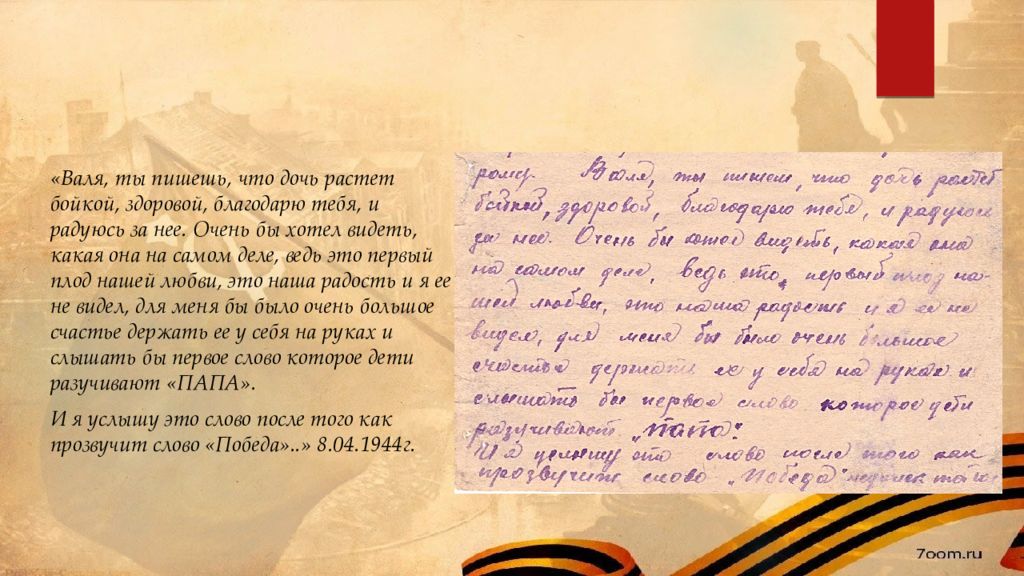 «Валя, ты пишешь, что дочь растет
бойкой, здоровой, благодарю тебя, и
радуюсь за нее. Очень бы хотел видеть,
какая она на самом деле, ведь это первый
плод нашей любви, это наша радость и я ее
не видел, для меня бы было очень большое
счастье держать ее у себя на руках и
слышать бы первое слово которое дети
разучивают «ПАПА».
И я услышу это слово после того как
прозвучит слово «Победа»..» 8.04.1944г.
Валя, ты пишеш, что дочь растет
бойкой, здоровой, благодарю тебя, и радуюсь
за нее. Очень бы хотел видеть, какая она
на самом деле, ведь это, первый плод на-
шей любви, это наша радость и я ее не
видел, для меня бы было очень большое
счастье держать ее у себя на руках и
слышать бы первое слово которое дети
разучивают „папа".
И я услышу это слово после того как
прозвучит слово „Победа"
7oom.ru